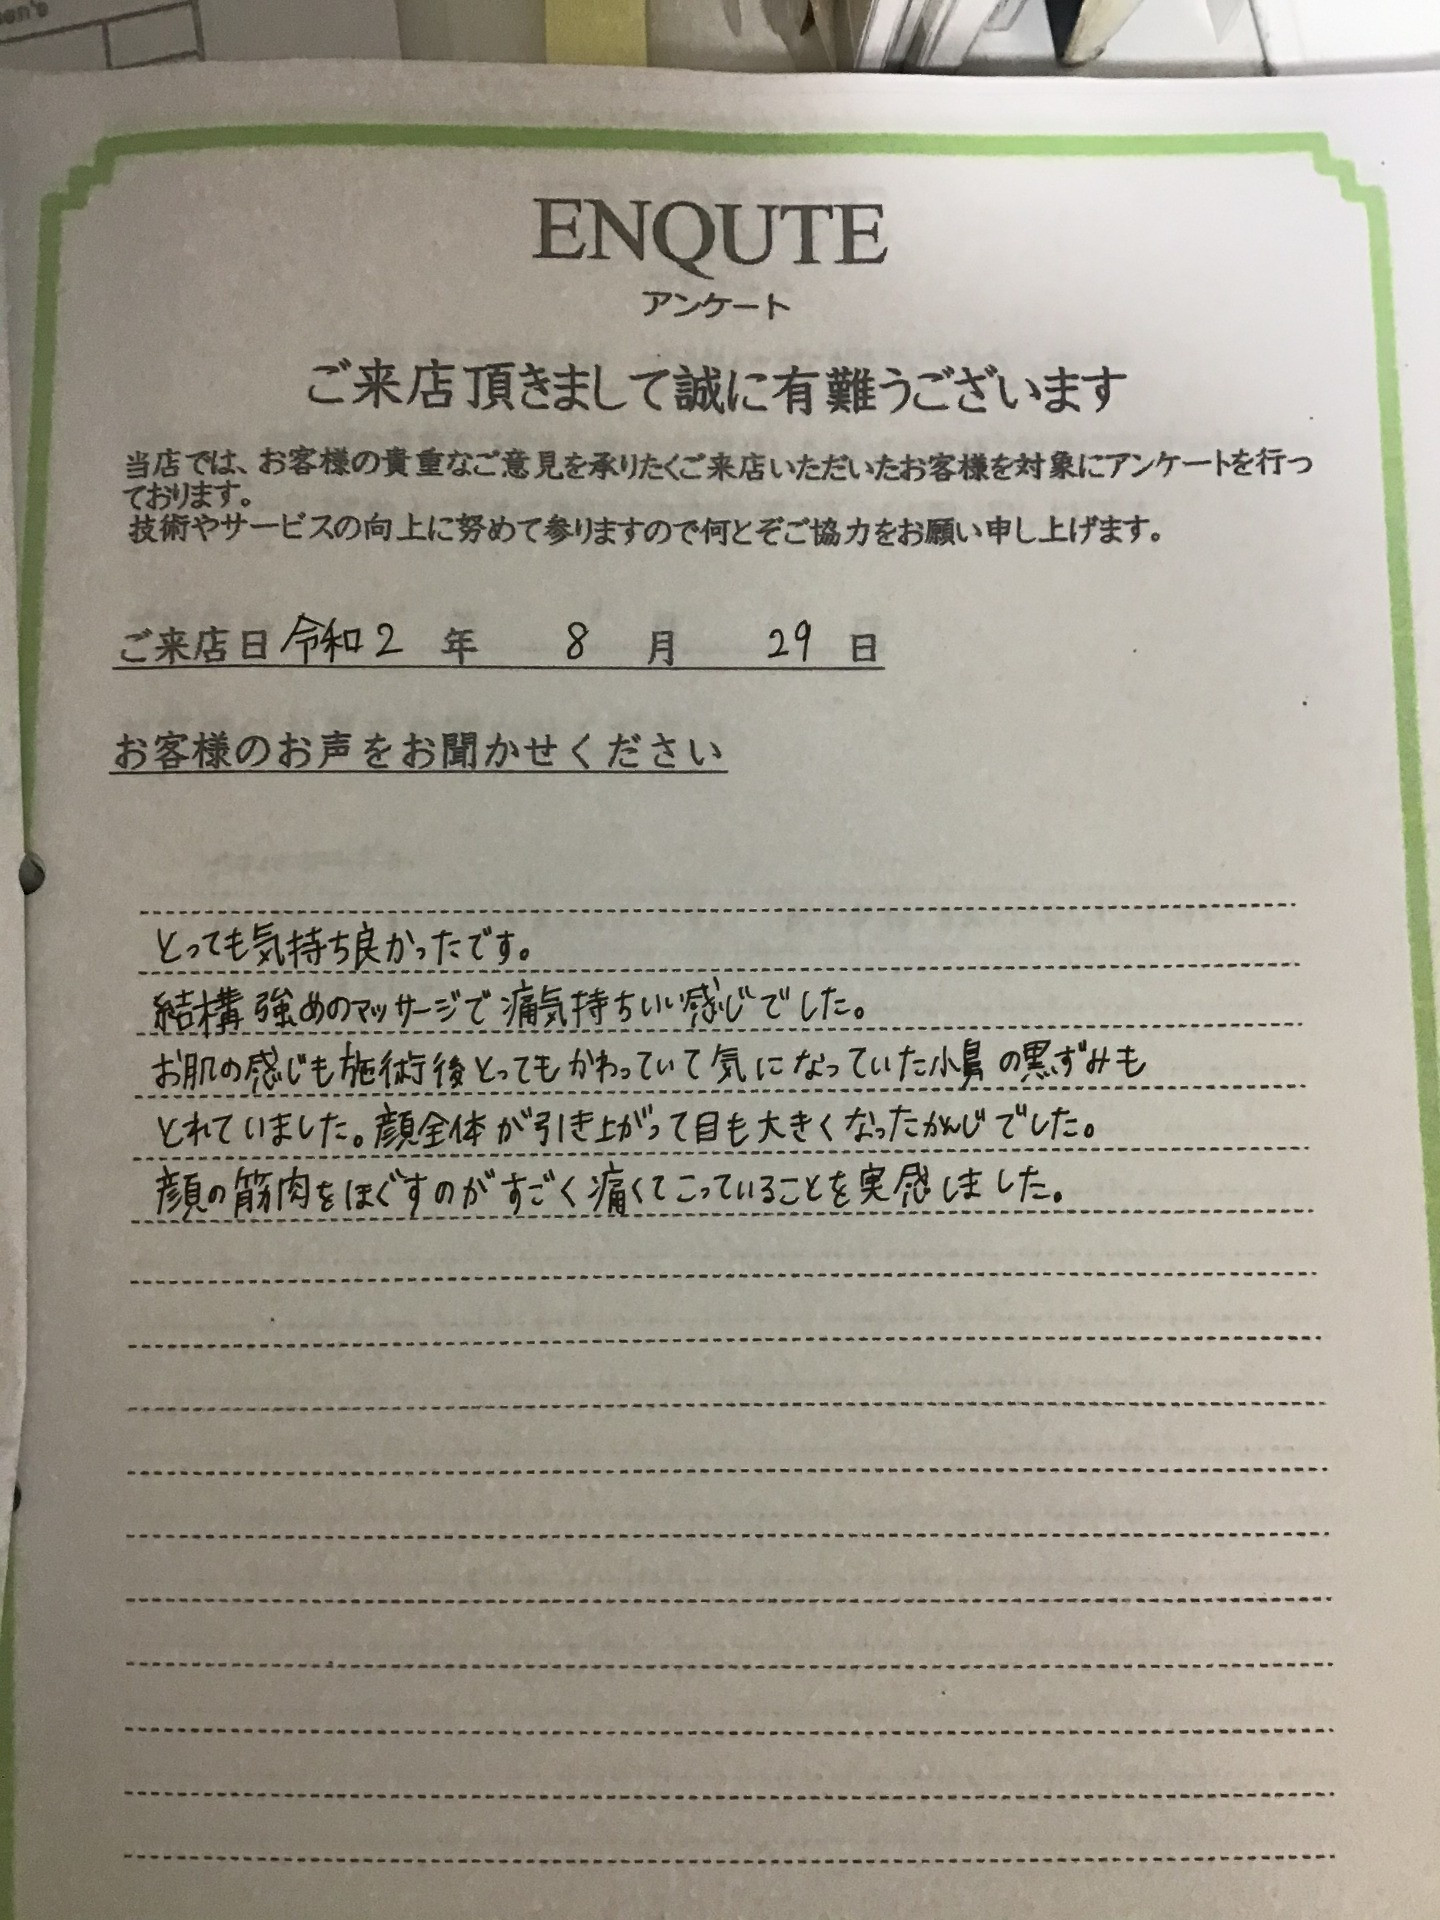 ENQUTE
アンケート
ご来店頂きまして誠に有難うございます
当店では、お客様の貴重なご意見を承りたくご来店いただいたお客様を対象にアンケートを行っ
ております。
技術やサービスの向上に努めて参りますので何とぞご協力をお願い申し上げます。
ご来店日 令和2 年 8 月 29 日
お客様のお声をお聞かせください
とっても気持ち良かったです。
結構強めのマッサージで痛気持ちいい感じでした。
お肌の感じも施術後とってもかわっていて気になっていた小鼻の黒ずみも
とれていました。顔全体が引き上がって目も大きくなったかんじでした。
顔の筋肉をほぐすのがすごく痛くてこっていることを実感しました。